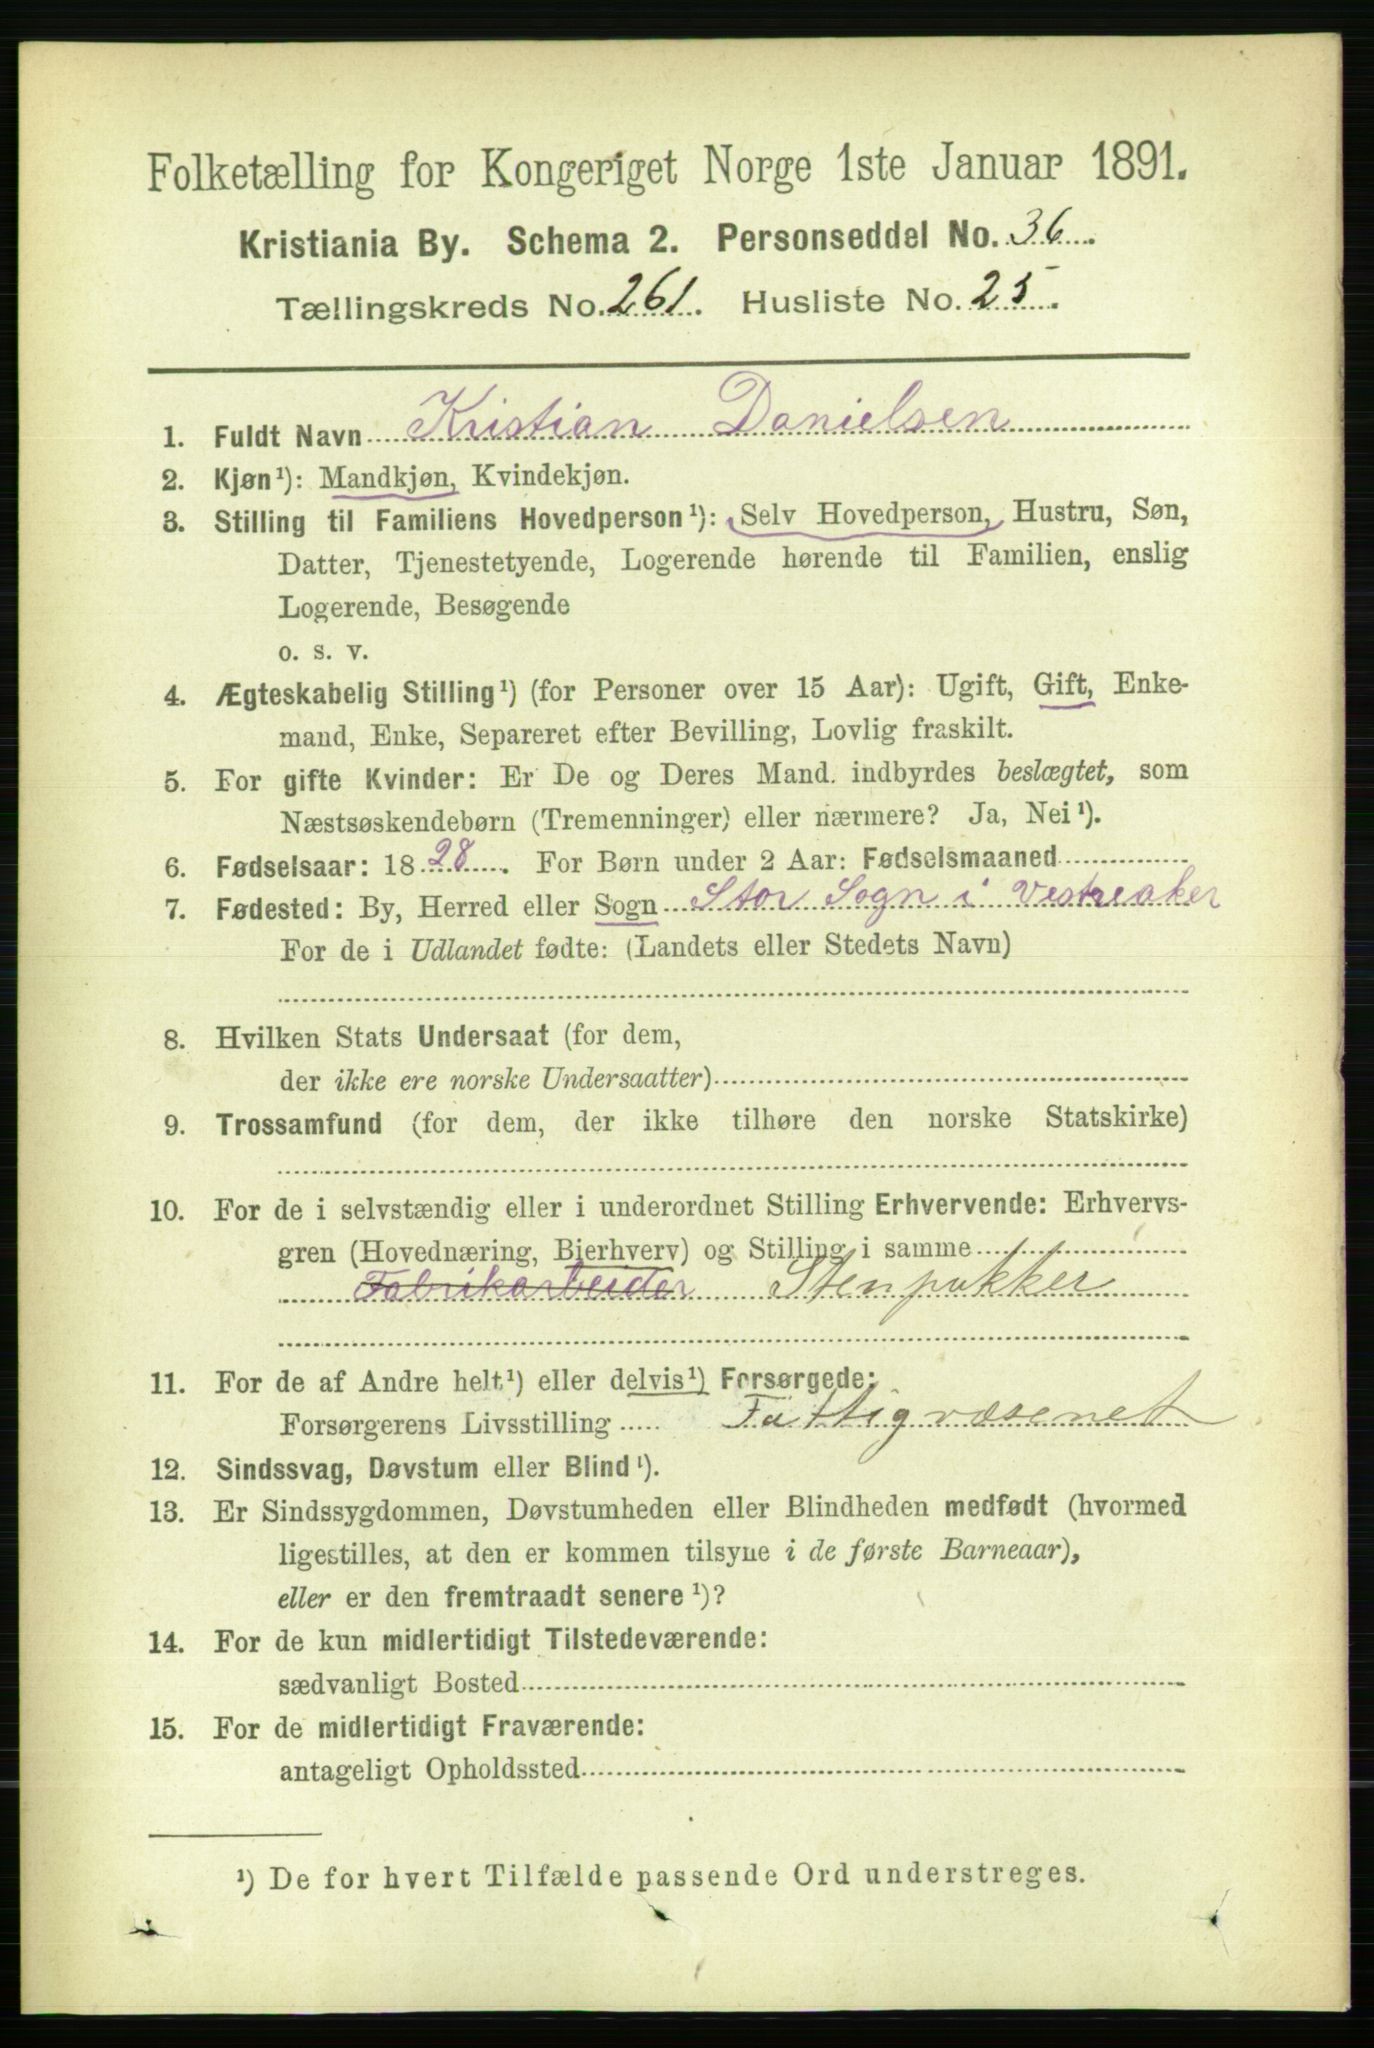 Folketælling for Kongeriget Norge 1ste Januar 1891.
Kristiania By. Schema 2. Personseddel No. 36.
Tællingskreds No. 261. Husliste No. 25.
1. Fuldt Navn Kristian Danielsen
2. Kjøn¹): Mandkjøn, Kvindekjøn.
3. Stilling til Familiens Hovedperson¹): Selv Hovedperson, Hustru, Søn,
Datter, Tjenestetyende, Logerende hørende til Familien, enslig
Logerende, Besøgende
o. s. v.
4. Ægteskabelig Stilling¹) (for Personer over 15 Aar): Ugift, Gift, Enke-
mand, Enke, Separeret efter Bevilling, Lovlig fraskilt.
5. For gifte Kvinder: Er De og Deres Mand. indbyrdes beslægtet, som
Næstsøskendebørn (Tremenninger) eller nærmere? Ja, Nei¹).
6. Fødselsaar: 1828. For Børn under 2 Aar: Fødselsmaaned
7. Fødested: By, Herred eller Sogn Stor Sogn i Vestreaker
For de i Udlandet fødte: (Landets eller Stedets Navn)
8. Hvilken Stats Undersaat (for dem,
der ikke ere norske Undersaatter)
9. Trossamfund (for dem, der ikke tilhøre den norske Statskirke)
10. For de i selvstændig eller i underordnet Stilling Erhvervende: Erhvervs-
gren (Hovednæring, Bierhverv) og Stilling i samme
Fabrikarbeider Stenpukker
11. For de af Andre helt¹) eller delvis¹) Forsørgede:
Forsørgerens Livsstilling Fattigvæsenet
12. Sindssvag, Døvstum eller Blind¹).
13. Er Sindssygdommen, Døvstumheden eller Blindheden medfødt (hvormed
ligestilles, at den er kommen tilsyne i de første Barneaar),
eller er den fremtraadt senere¹)?
14. For de kun midlertidigt Tilstedeværende:
sædvanligt Bosted
15. For de midlertidigt Fraværende:
antageligt Opholdssted
¹) De for hvert Tilfælde passende Ord understreges.